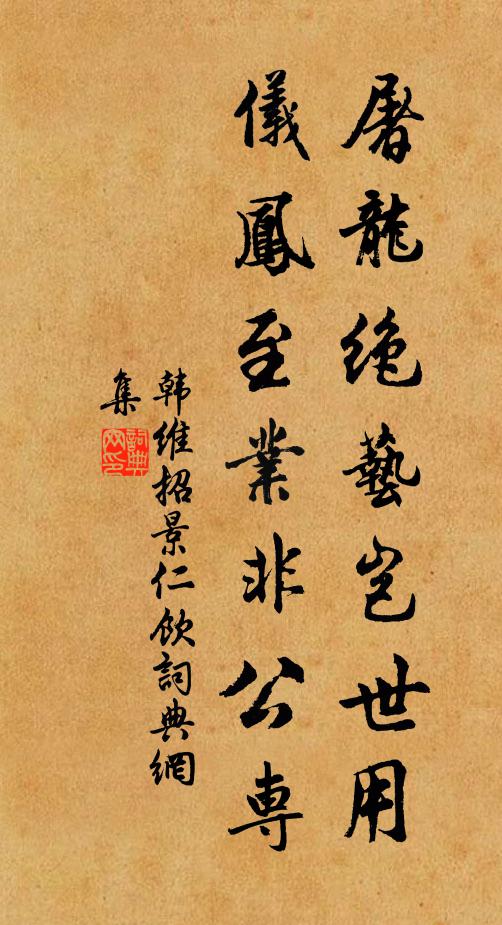 屠龍絶藝豈世用
儀鳳至業非公専
韩維招景仁飲詞典網
集
詞典
网印